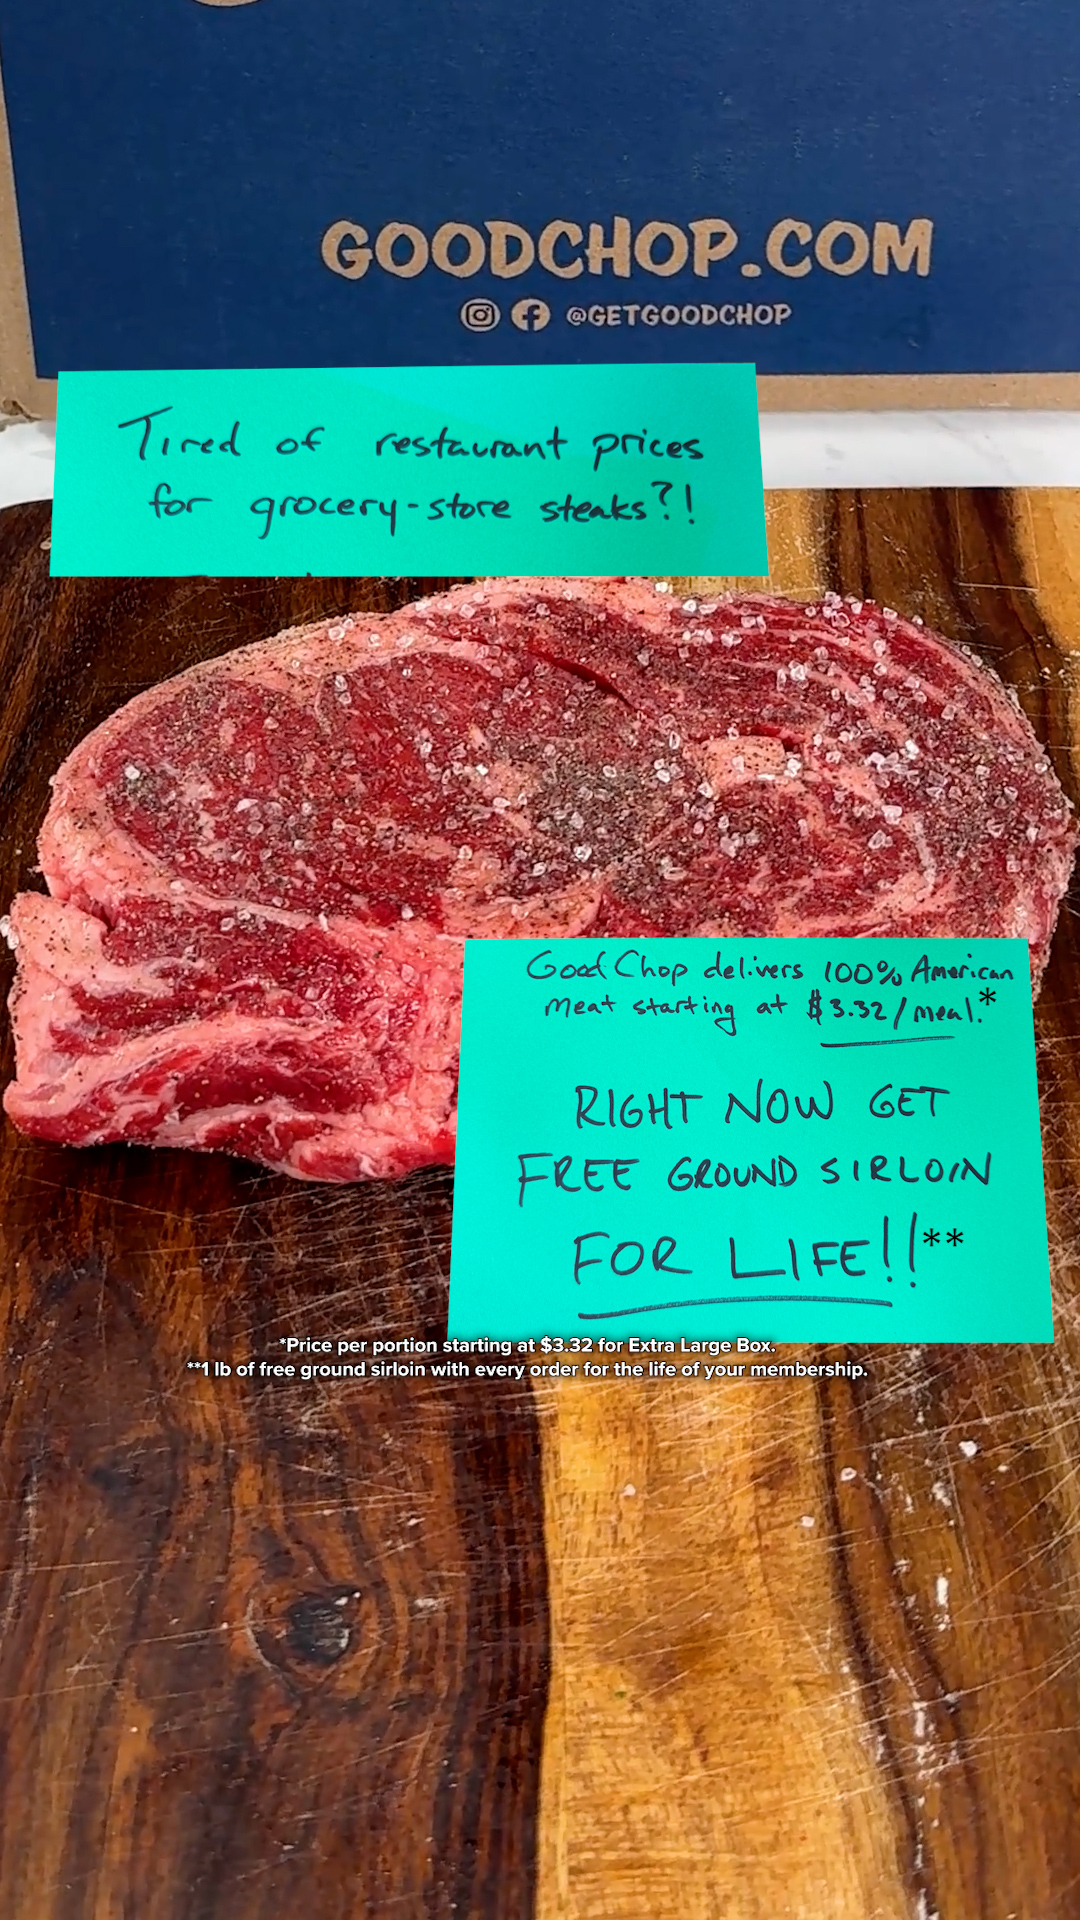 GOODCHOP.COM
@GETGOODCHOP
Tired of restaurant prices
for grocery-store steaks?!
Good Chop delivers 100% American
meat starting at $3.32/meal.*
RIGHT NOW GET
FREE GROUND SIRLOIN
FOR LIFE!!**
*Price per portion starting at $3.32 for Extra Large Box.
**1 lb of free ground sirloin with every order for the life of your membership.